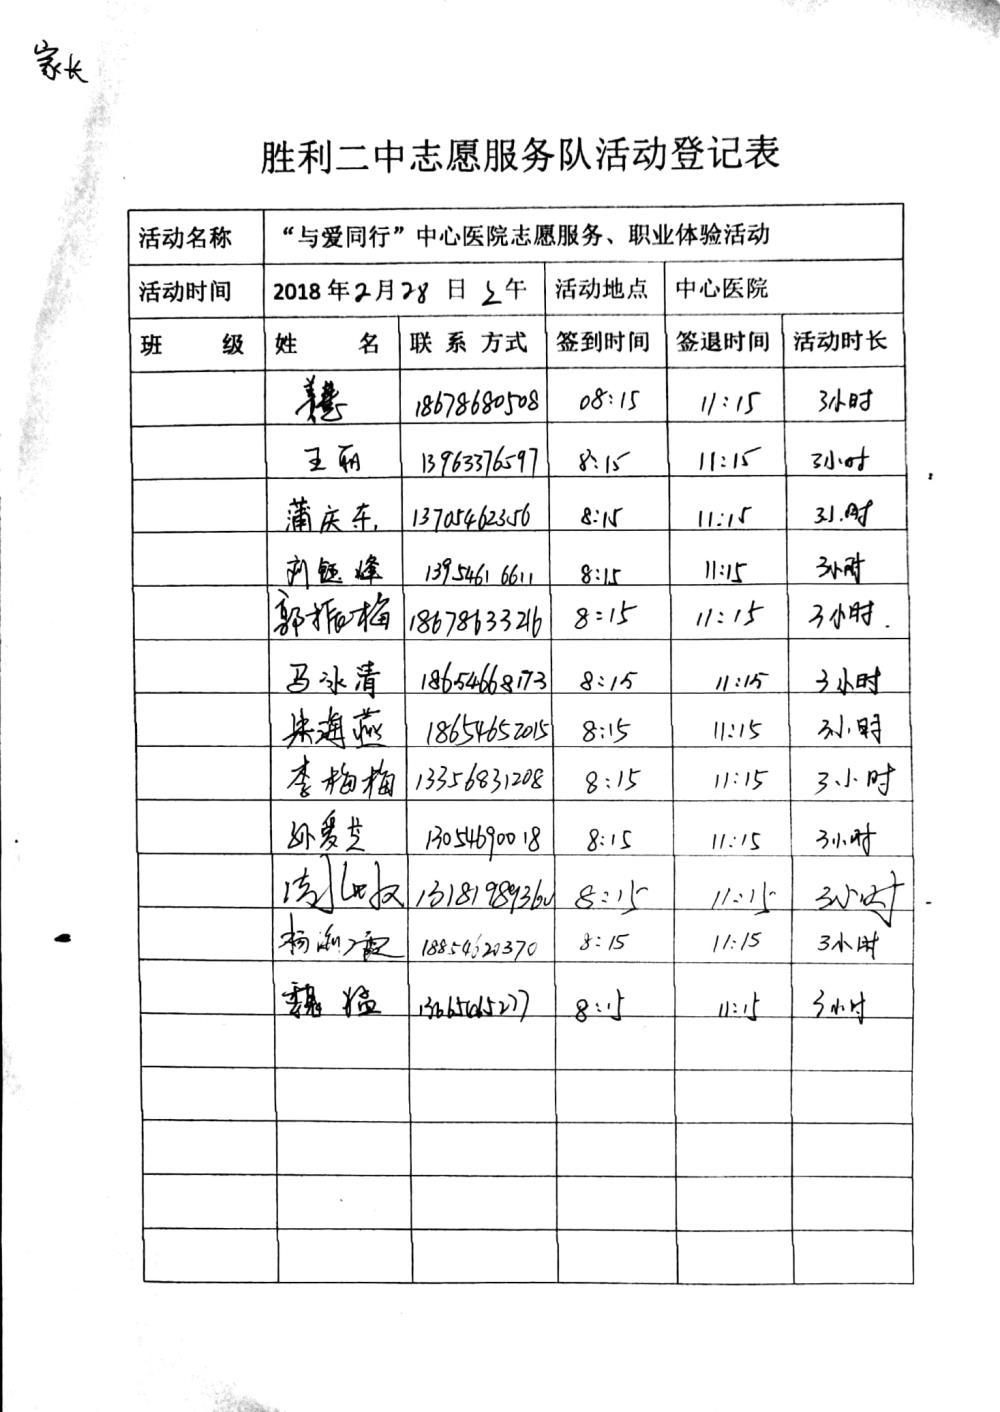 家长
胜利二中志愿服务队活动登记表
活动名称 “与爱同行”中心医院志愿服务、职业体验活动
活动时间 2018年2月28日上午 活动地点 中心医院
班 级 姓 名 联系方式 签到时间 签退时间 活动时长
18678680508 08:15 11:15 3小时
王丽 13963376597 8:15 11:15 3小时
蒲庆东 13705462356 8:15 11:15 3小时
刘钰峰 13954616611 8:15 11:15 3小时
郭振梅 18678633216 8:15 11:15 3小时.
马冰清 18654668173 8:15 11:15 3小时
海燕 18654652015 8:15 11:15 3小时
李梅梅 13356831208 8:15 11:15 3小时
孙爱芝 13054690018 8:15 11:15 3小时
8:15 11:15 3小时
杨 霞 18854620370 8:15 11:15 3小时
魏猛 8:15 11:15 3小时